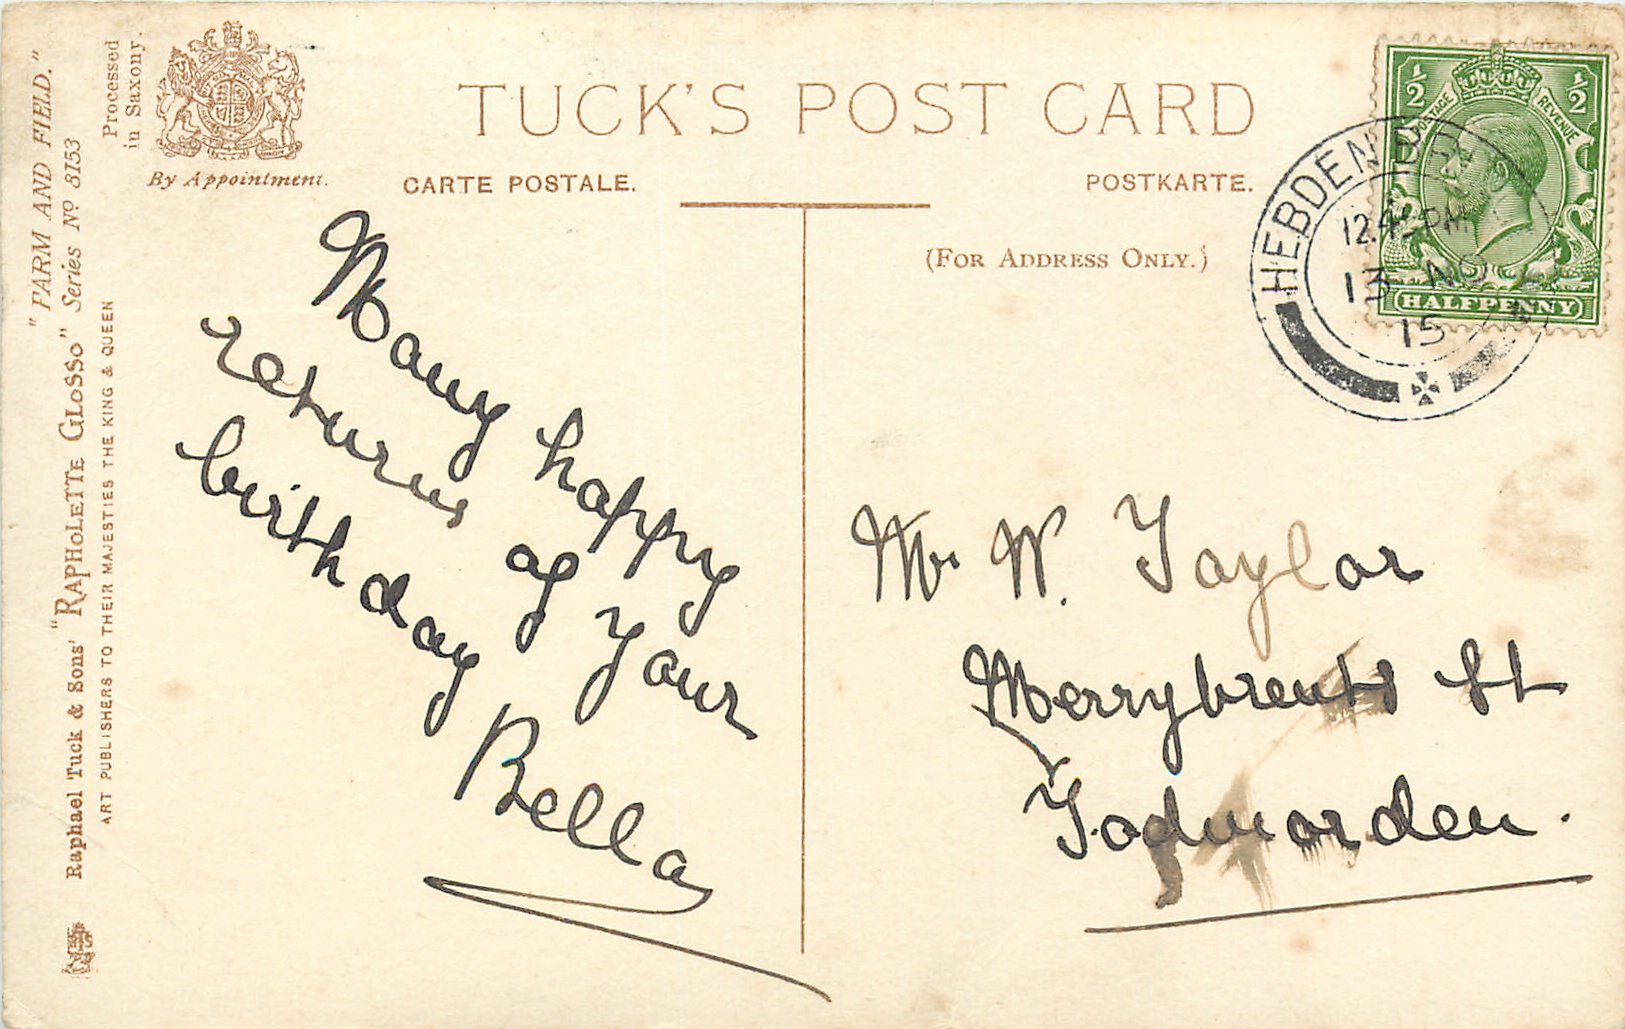 TUCK'S POST CARD
CARTE POSTALE.
POSTKARTE.
(FOR ADDRESS ONLY.)
Processed
in Saxony.
By Appointment.
"FARM AND FIELD."
Raphael Tuck & Sons' "RAPHOLETTE GLOSSO" Series Nº 8153
ART PUBLISHERS TO THEIR MAJESTIES THE KING & QUEEN
Many happy
returns of your
birthday
Bella
½ ½
POSTAGE REVENUE
HALFPENNY
HEBDEN
12.45 PM
13 NO
15
Mr W. Taylor
Merrybrents St
Todmorden.